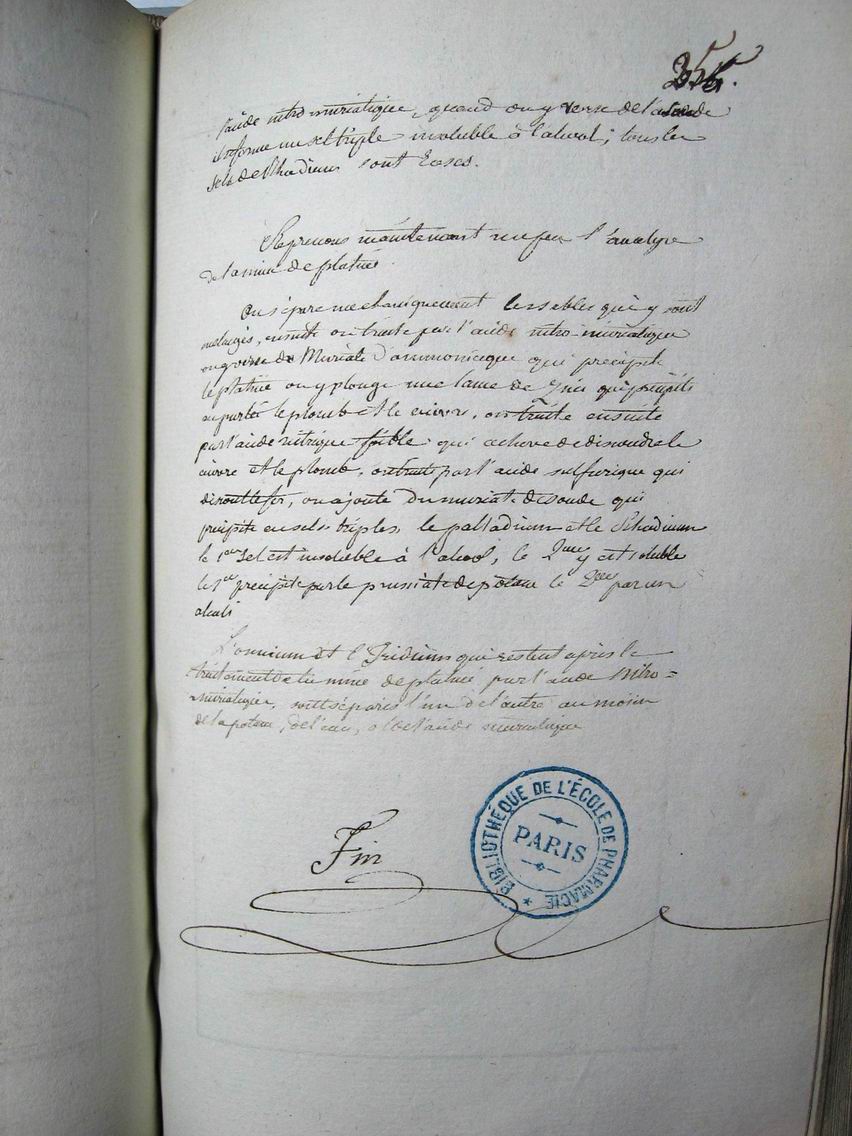 355.
l'acide nitro muriatique, quand on y verse de la soude
il se forme un sel triple insoluble à l'alcool; tous les
sels de Rhodium sont Roses.
Reprenons maintenant un peu l'analyse
de la mine de platine.
On sépare mechaniquement les sables qui y sont
melangés, ensuite on traite par l'acide nitro-muriatique
on y verse du Muriate d'ammoniaque qui précipite
le platine on y plonge une lame de Zinc qui précipite
en partie le plomb et le cuivre, on traite ensuite
par l'acide nitrique foible qui acheve de dissoudre le
cuivre et le plomb, on traite par l'acide sulfurique qui
dissout le fer, on ajoute du muriate de soude qui
precipite en sels triples, le palladium et le Rhodium
le 1er Sel est insoluble à l'alcool, le 2me y est soluble
le 1er précipite par le prussiate de potasse le 2me par un
alcali
L'osmium et l'Iridium qui restent après le
traitement de la mine de platine par l'acide nitro=
-muriatique, sont séparés l'un de l'autre au moien
de la potasse, de l'eau, et de l'acide muriatique
Fin
BIBLIOTHÈQUE DE L'ÉCOLE DE PHARMACIE
PARIS